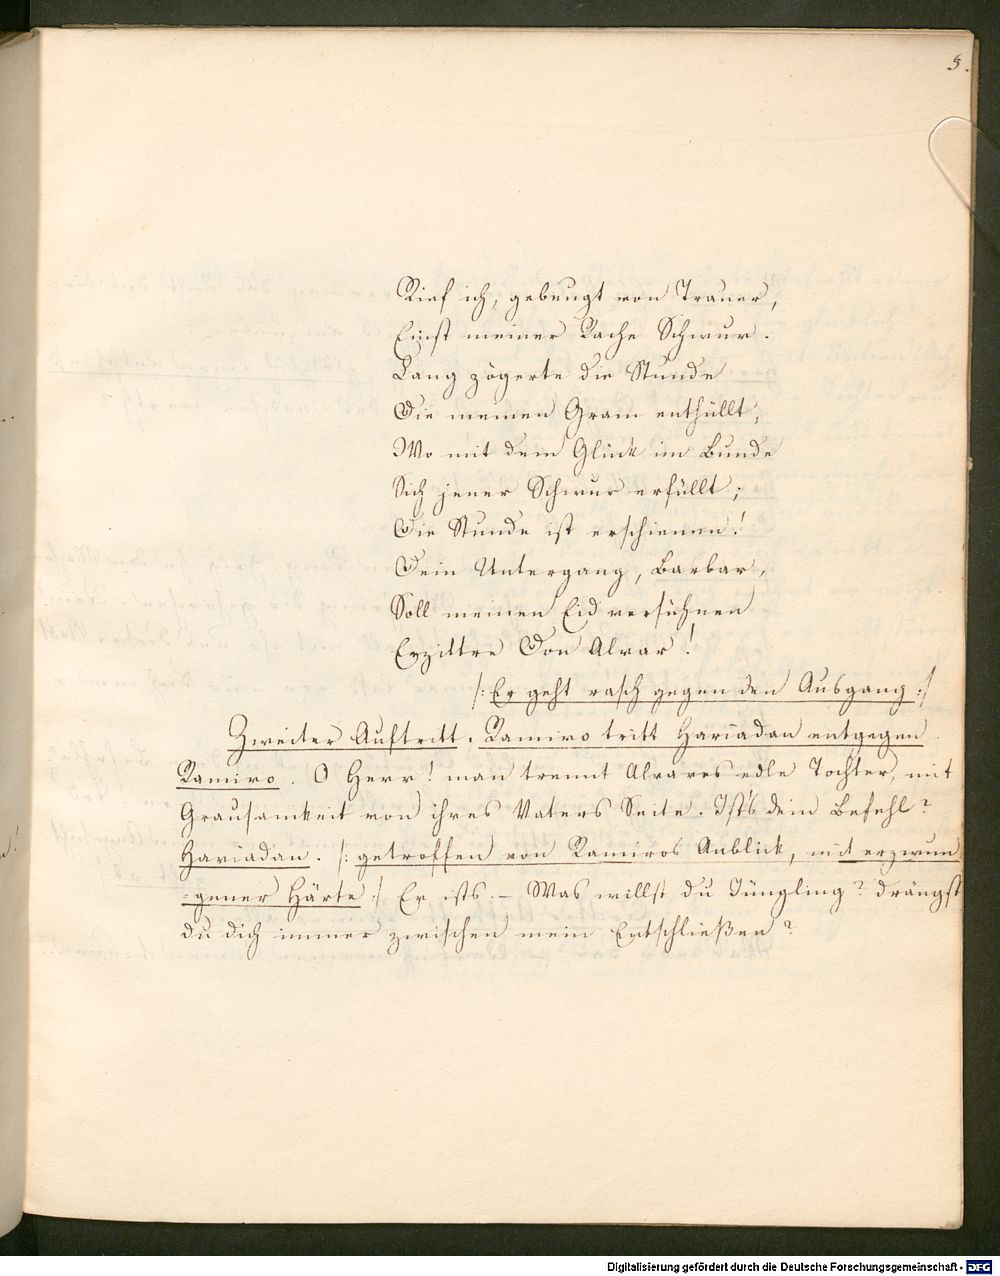 5.
Rief ich, gebeugt von Trauer,
Einst meiner Rache Schwur.
Lang zögerte die Stunde
Die meinen Gram enthüllt,
Wo mit dem Glück im Bunde
Sich jener Schwur erfüllt;
Die Stunde ist erschienen!
Dein Untergang, Barbar,
Soll meinen Eid versühnen
Erzittre Don Alvar!
/: Er geht rasch gegen den Ausgang :/
Zweiter Auftritt. Ramiro tritt Hariadan entgegen
Ramiro. O Herr! man trennt Alvares edle Tochter, mit
Grausamkeit von ihres Vaters Seite. Ists dein Befehl?
Hariadan. /: getroffen von Ramiros Anblick, mit erzwun
-gener Härte :/ Er ists. – Was willst du Jüngling? drängst
du dich immer zwischen mein Entschließen?
Digitalisierung gefördert durch die Deutsche Forschungsgemeinschaft - DFG